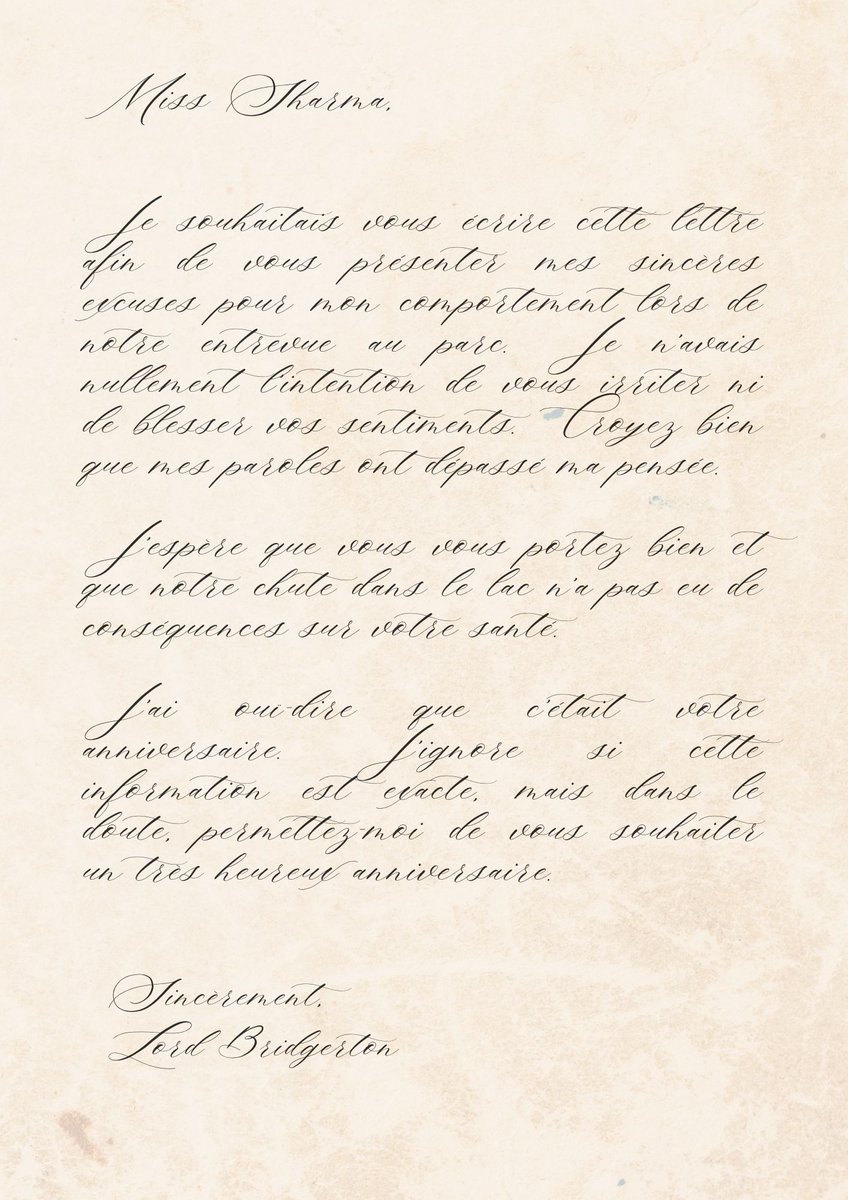 Miss Sharma,
Je souhaitais vous écrire cette lettre
afin de vous présenter mes sincères
excuses pour mon comportement lors de
notre entrevue au parc. Je n'avais
nullement l'intention de vous irriter ni
de blesser vos sentiments. Croyez bien
que mes paroles ont dépassé ma pensée.
J'espère que vous vous portez bien et
que notre chute dans le lac n'a pas eu de
conséquences sur votre santé.
J'ai ouï-dire que c'était votre
anniversaire. J'ignore si cette
information est exacte, mais dans le
doute, permettez-moi de vous souhaiter
un très heureux anniversaire.
Sincèrement,
Lord Bridgerton